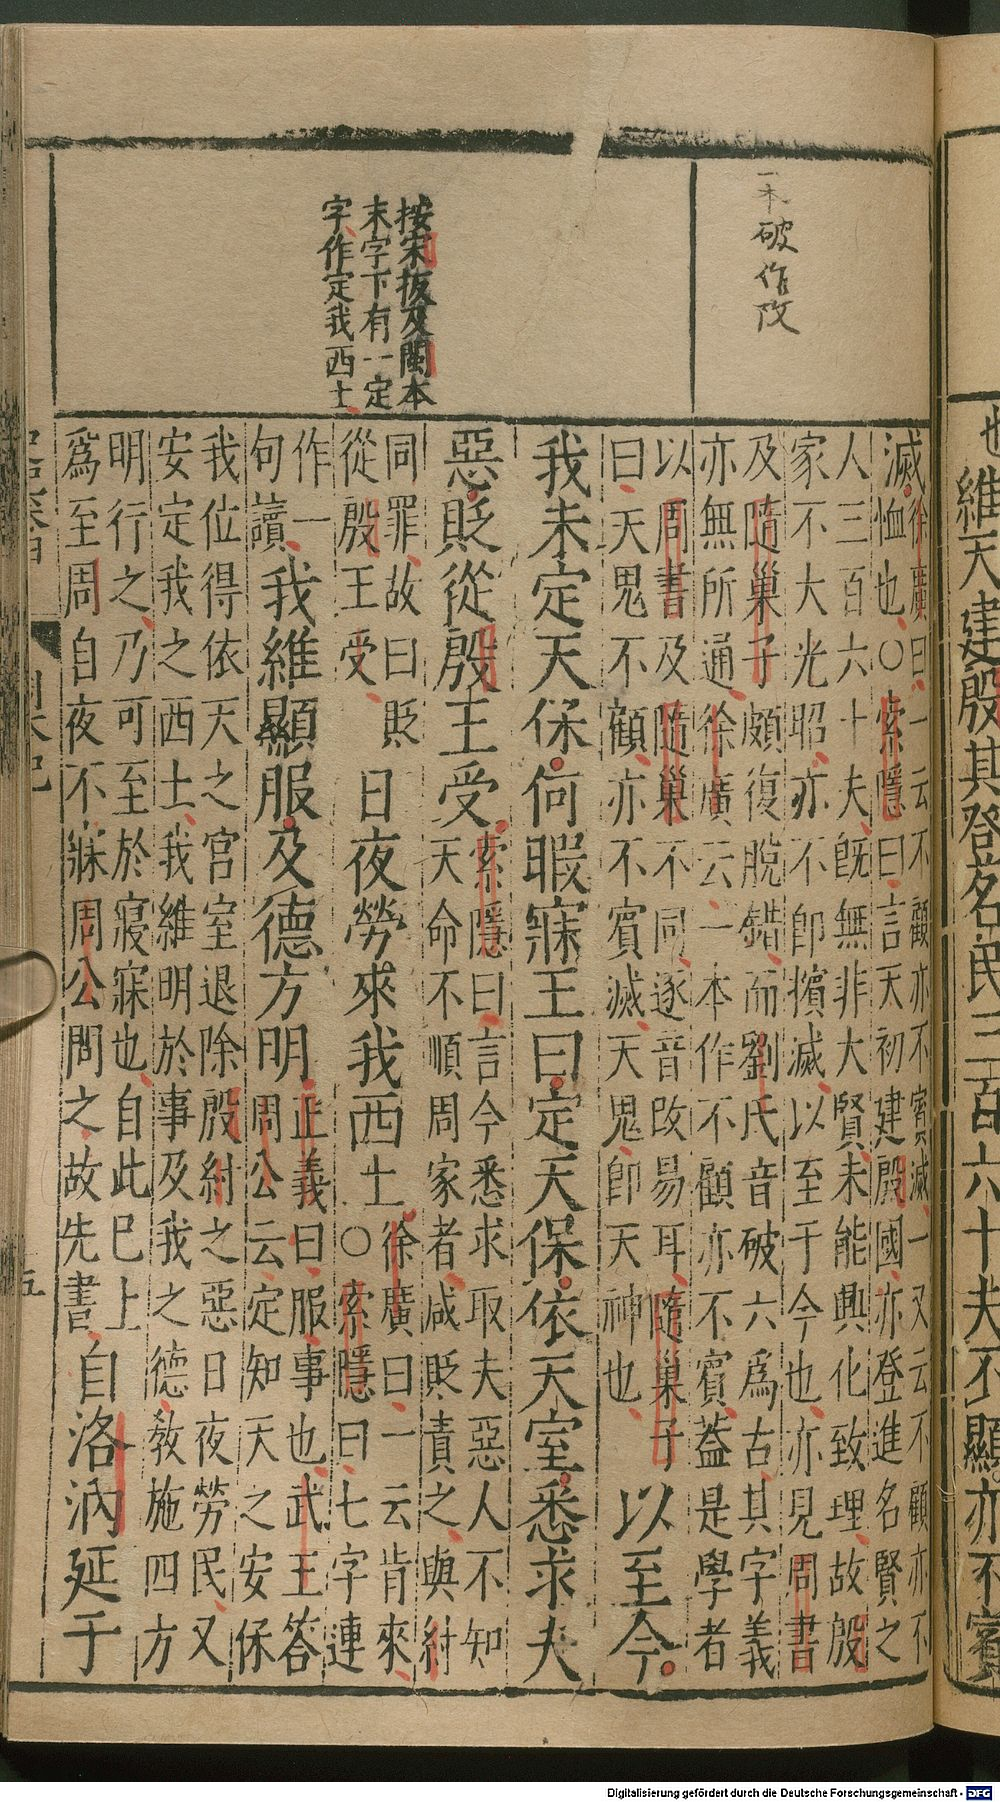 也維天建殷其登名民三百六十夫不顯亦不賓
一本破作改
按宋板及閩本
末字下有一定
字作定我西土
滅徐廣曰一云不顧亦不賓滅一又云不顧亦不
恤也○索隱曰言天初建殷國亦登進名賢之
人三百六十夫旣無非大賢未能興化致理故殷
家不大光昭亦不卽擯滅以至于今也亦見周書
及隨巢子頗復脫錯而劉氏音破六爲古其字義
亦無所通徐廣云一本作不顧亦不賓蓋是學者
以周書及隨巢不同逐音改易耳隨巢子
曰天鬼不顧亦不賓滅天鬼卽天神也
以至今
我未定天保何暇寐王曰定天保依天室悉求夫
惡貶從殷王受
索隱曰言今悉求取夫惡人不知
天命不順周家者咸貶責之與紂
同罪故曰貶
從殷王受
日夜勞來我西土
徐廣曰一云肯來
○索隱曰七字連
作一
句讀
我維顯服及德方明
正義曰服事也武王答
周公云定知天之安保
我位得依天之宮室退除殷紂之惡日夜勞民又
安定我之西土我維明於事及我之德教施四方
明行之乃可至於寢寐也自此巳上
爲至周自夜不寐周公問之故先書
自洛汭延于
五
Digitalisierung gefördert durch die Deutsche Forschungsgemeinschaft - DFG